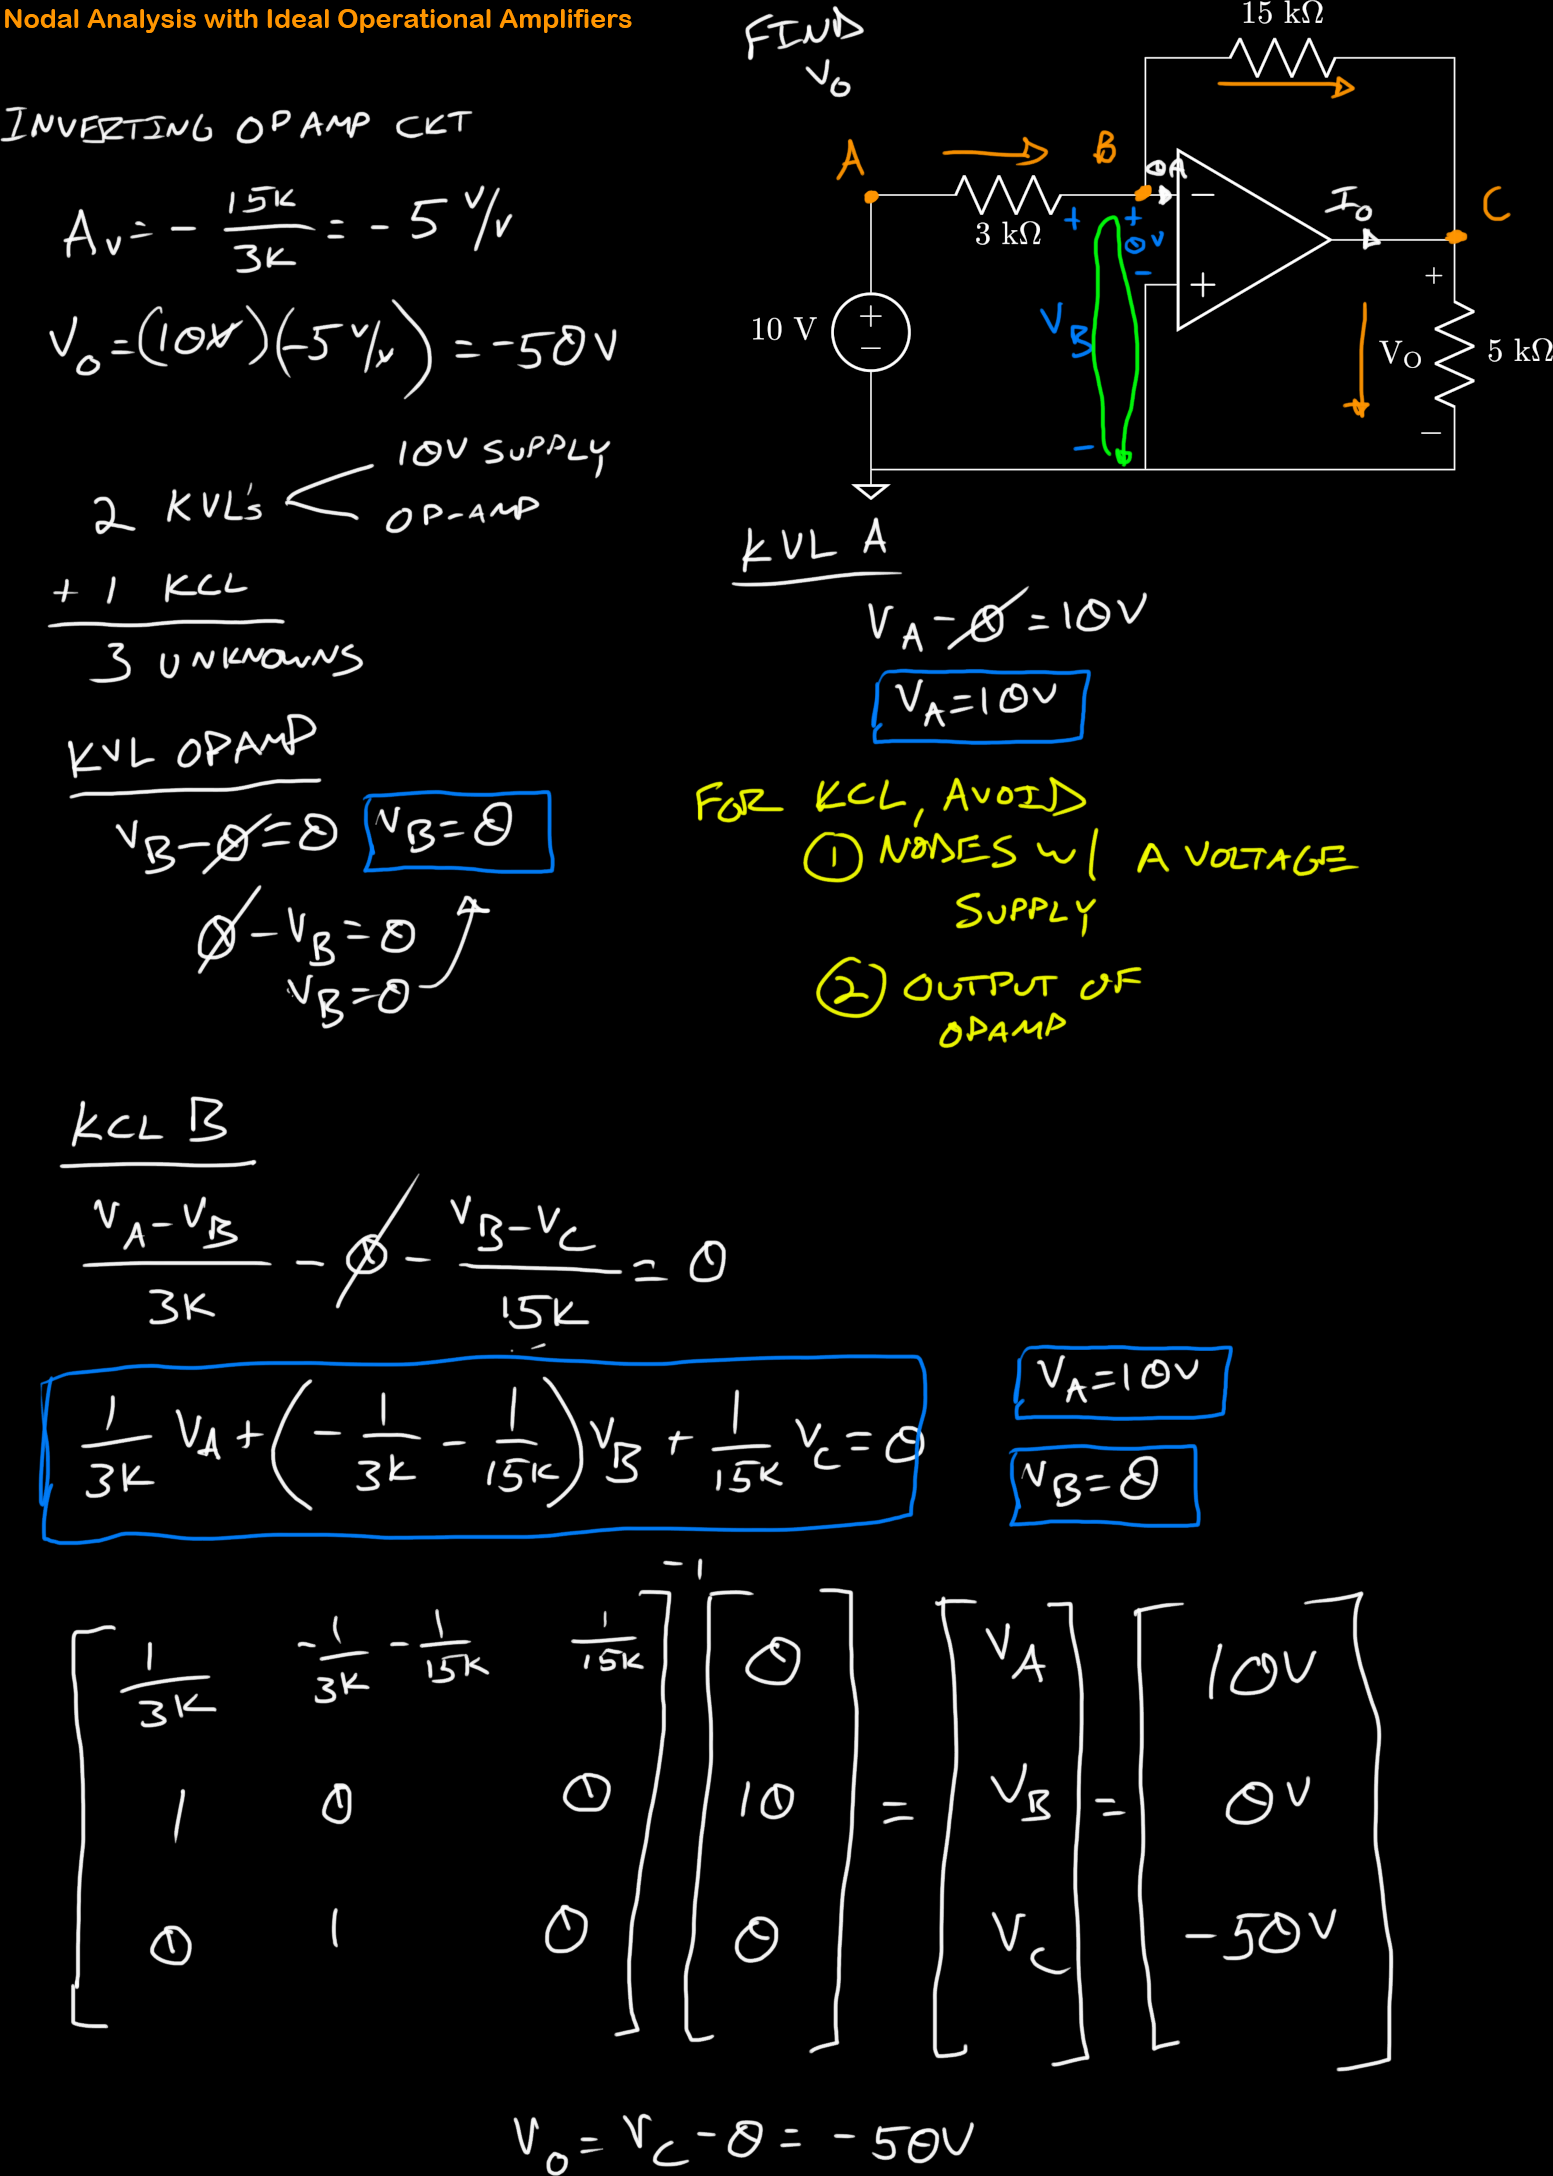 Nodal Analysis with Ideal Operational Amplifiers
FIND
V_O
15 kΩ
A
B
0A
−
I_O
C
3 kΩ
+
+
0V
−
+
+
10 V
+
−
V_B
V_O
5 kΩ
−
−
INVERTING OPAMP CKT
A_V = - 15K/3K = -5 V/V
V_O = (10V)(-5 V/V) = -50V
2 KVL's
10V SUPPLY
OP-AMP
+ 1 KCL
3 UNKNOWNS
KVL A
V_A - 0 = 10V
V_A = 10V
KVL OPAMP
V_B - 0 = 0
V_B = 0
0 - V_B = 0
V_B = 0
FOR KCL, AVOID
① NODES w/ A VOLTAGE
SUPPLY
② OUTPUT OF
OPAMP
KCL B
(V_A - V_B)/3K - 0 - (V_B - V_C)/15K = 0
1/3K V_A + (- 1/3K - 1/15K) V_B + 1/15K V_C = 0
V_A = 10V
V_B = 0
[1/3K   -1/3K - 1/15K   1/15K]^-1 [0] = [V_A] = [10V]
[1   0   0] [10] = [V_B] = [0V]
[0   1   0] [0] [V_C] [-50V]
V_O = V_C - 0 = -50V